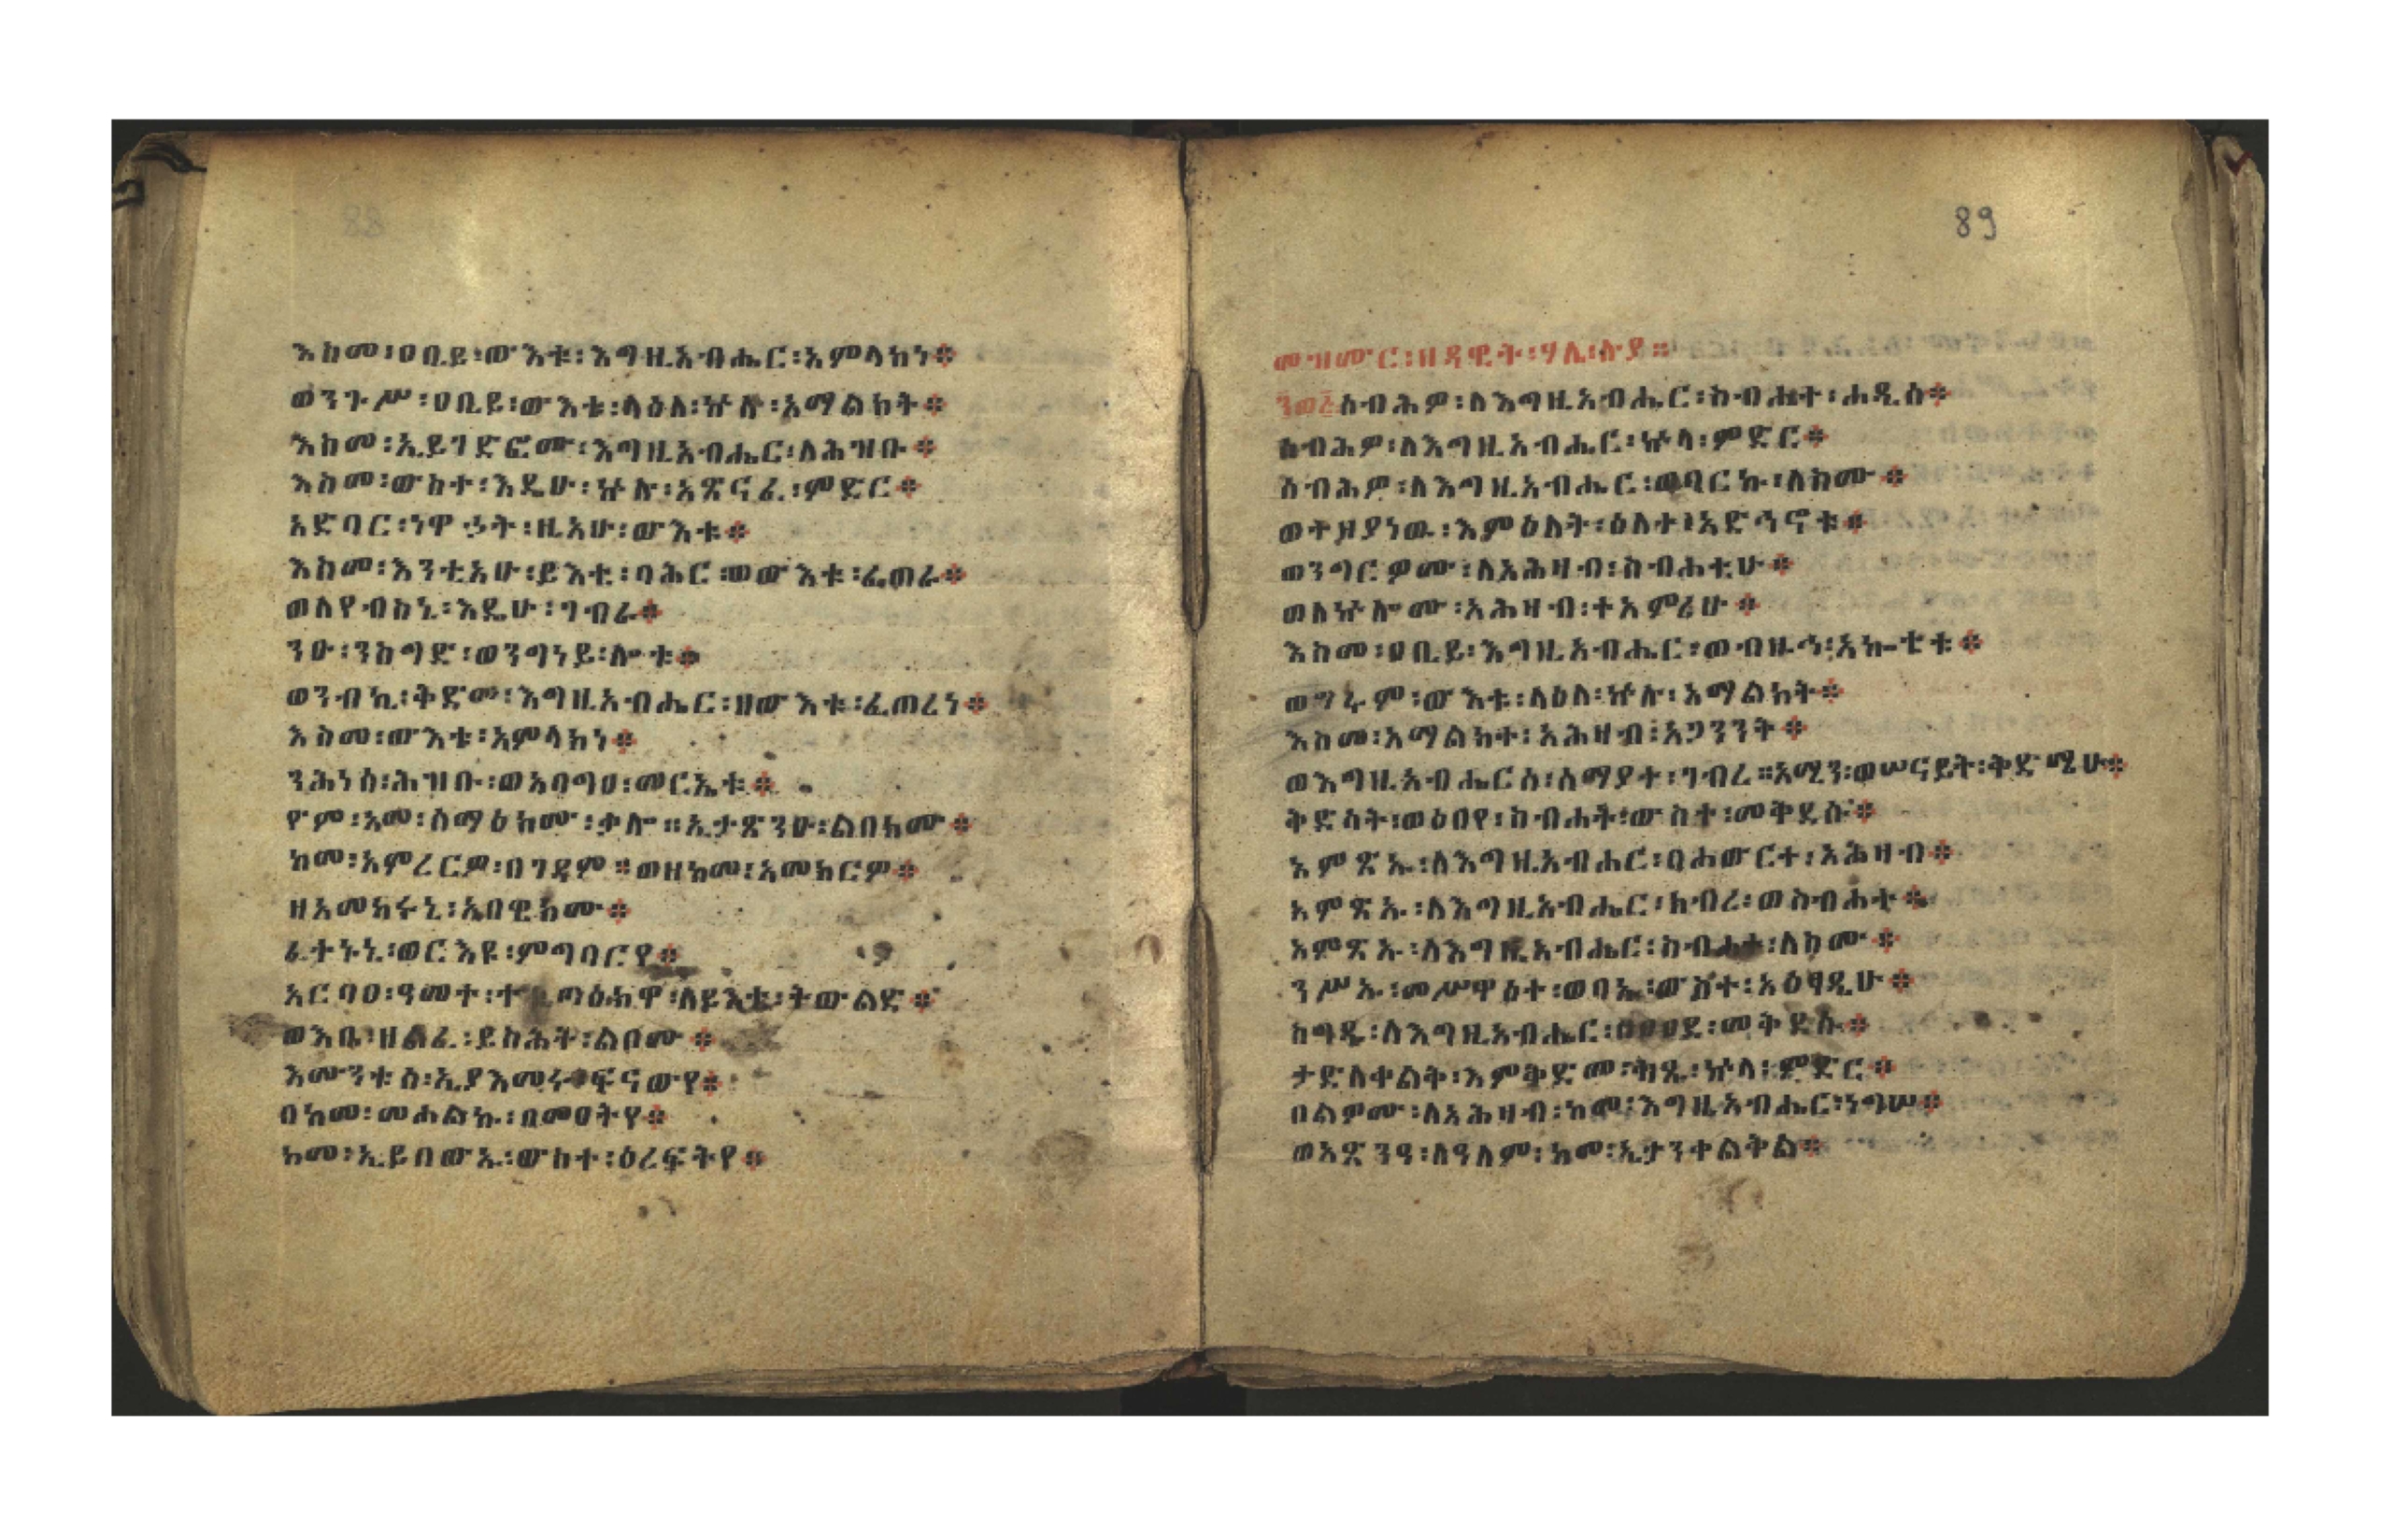 88
እስመ፡ዐቢይ፡ውእቱ፡እግዚአብሔር፡አምላክነ፨
ወንጉሥ፡ዐቢይ፡ውእቱ፡ላዕለ፡ኵሉ፡አማልክት፨
እስመ፡ኢይገድፎሙ፡እግዚአብሔር፡ለሕዝቡ፨
እስመ፡ውስተ፡እዴሁ፡ኵሉ፡አጽናፈ፡ምድር፨
አድባር፡ነዋኃት፡ዚአሁ፡ውእቱ፨
እስመ፡እንቲአሁ፡ይእቲ፡ባሕር፡ወውእቱ፡ፈጠራ፨
ወለየብስኒ፡እዴሁ፡ገብራ፨
ንዑ፡ንስግድ፡ወንግነይ፡ሎቱ፨
ወንብኪ፡ቅድመ፡እግዚአብሔር፡ዘውእቱ፡ፈጠረነ፨
እስመ፡ውእቱ፡አምላክነ፨
ንሕነሰ፡ሕዝቡ፡ወአባግዐ፡መርኤቱ፨
ዮም፡እመ፡ሰማዕክሙ፡ቃሎ።ኢታጽንዑ፡ልበክሙ፨
ከመ፡አምረርዎ፡በገዳም።ወዘከመ፡አመከርዎ፨
ዘአመከሩኒ፡አበዊክሙ፨
ፈተኑኒ፡ወርእዩ፡ምግባርየ፨
አርባዐ፡ዓመተ፡ተቈጣዕክዋ፡ለይእቲ፡ትውልድ፨
ወእቤ፡ዘልፈ፡ይስሕት፡ልቦሙ፨
እሙንቱሰ፡ኢያእመሩ፡ፍናውየ፨
በከመ፡መሐልኩ፡በመዐትየ፨
ከመ፡ኢይበውኡ፡ውስተ፡ዕረፍትየ፨
89
መዝሙር፡ዘዳዊት፡ሃሌ፡ሉያ።
፺ወ፭ሰብሕዎ፡ለእግዚአብሔር፡ስብሐተ፡ሐዲሰ፨
ሰብሕዎ፡ለእግዚአብሔር፡ኵላ፡ምድር፨
ሰብሕዎ፡ለእግዚአብሔር፡ወባርኩ፡ለስሙ፨
ወተዘያነዉ፡እምዕለት፡ዕለተ፡አድኅኖቱ፨
ወንግርዎሙ፡ለአሕዛብ፡ስብሐቲሁ፨
ወለኵሎሙ፡አሕዛብ፡ተአምሪሁ፨
እስመ፡ዐቢይ፡እግዚአብሔር፡ወብዙኅ፡አኰቴቱ፨
ወግሩም፡ውእቱ፡ላዕለ፡ኵሉ፡አማልክት፨
እስመ፡አማልክተ፡አሕዛብ፡አጋንንት፨
ወእግዚአብሔርሰ፡ሰማያተ፡ገብረ።አሚን፡ወሠናይት፡ቅድሜሁ፨
ቅድሳት፡ወዕበየ፡ስብሐት፡ውስተ፡መቅደሱ፨
አምጽኡ፡ለእግዚአብሔር፡በሐውርተ፡አሕዛብ፨
አምጽኡ፡ለእግዚአብሔር፡ክብረ፡ወስብሐተ፨
አምጽኡ፡ለእግዚአብሔር፡ስብሐተ፡ለስሙ፨
ንሥኡ፡መሥዋዕተ፡ወባኡ፡ውስተ፡አዕፃዲሁ፨
ስግዱ፡ለእግዚአብሔር፡በዐፀደ፡መቅደሱ፨
ታድለቀልቅ፡እምቅድመ፡ገጹ፡ኵላ፡ምድር፨
በልዎሙ፡ለአሕዛብ፡ከመ፡እግዚአብሔር፡ነግሠ፨
ወአጽንዓ፡ለዓለም፡ከመ፡ኢታንቀልቅል፨